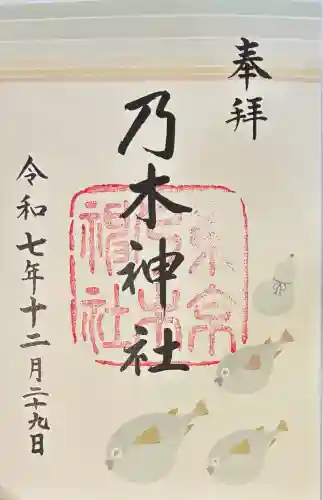 奉拝
乃木神社
令和七年十二月二十九日